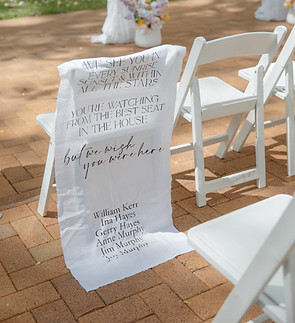 WE SEE YOU IN
EVERY SUNRISE
SUNSET & WITHIN
ALL THE STARS
YOU'RE WATCHING
FROM THE BEST SEAT
IN THE HOUSE
but we wish
you were here
William Kerr
Ina Hayes
Gerry Hayes
Anne Murphy
Jim Murphy
Murphy